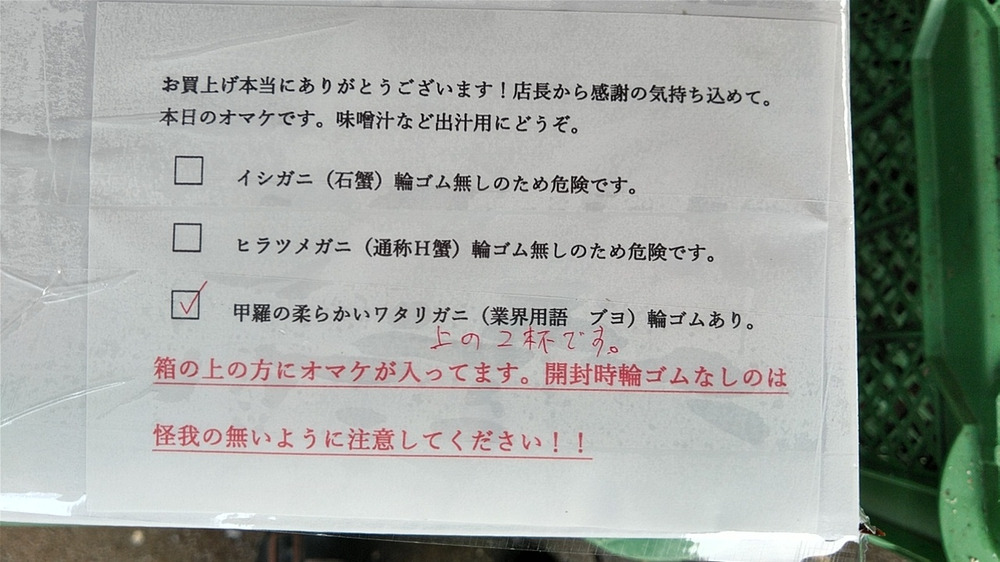 お買上げ本当にありがとうございます！店長から感謝の気持ち込めて。
本日のオマケです。味噌汁など出汁用にどうぞ。
□ イシガニ（石蟹）輪ゴム無しのため危険です。
□ ヒラツメガニ（通称H蟹）輪ゴム無しのため危険です。
☑ 甲羅の柔らかいワタリガニ（業界用語　ブヨ）輪ゴムあり。
上の2杯です。
箱の上の方にオマケが入ってます。開封時輪ゴムなしのは
怪我の無いように注意してください！！